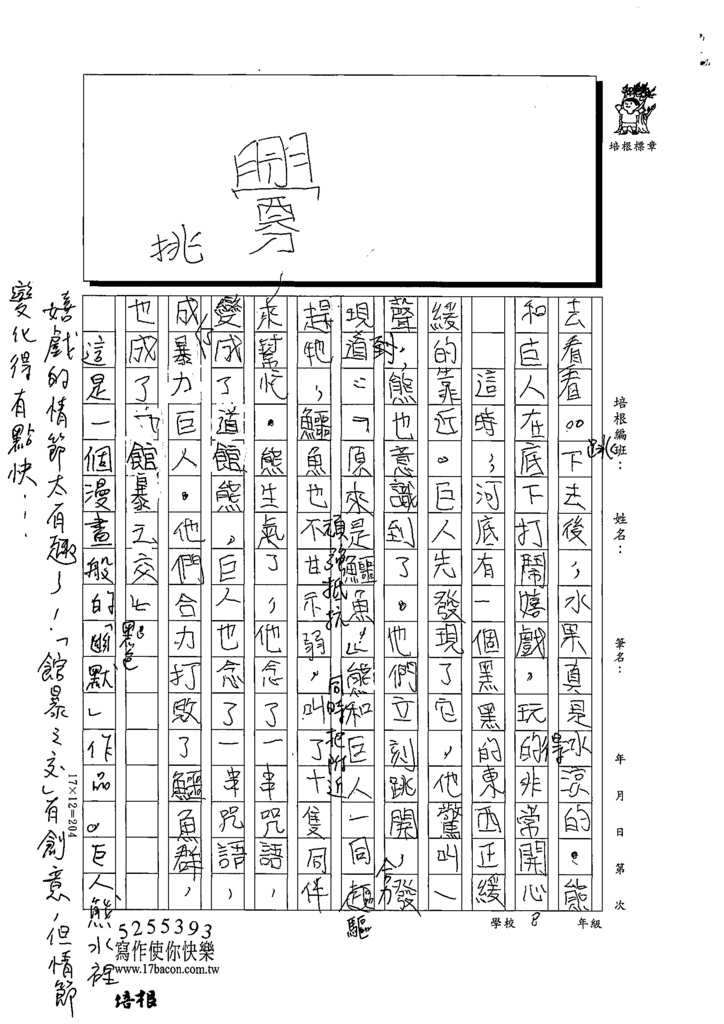 培根標章
挑
培根編班：
姓名：
筆名：
年 月 日 第 次
學校 8 年級
去看看。。下去後，水果真是冰涼的。熊
和巨人在底下打鬧嬉戲，玩的非常開心
得
這時，河底有一個黑黑的東西正緩
緩的靠近。巨人先發現了它，他驚叫一
聲，熊也意識到了。他們立刻跳開，發
現道：「原來是鱷魚」熊和巨人一同趨
到
合力
驅
趕牠，鱷魚也不甘示弱，叫了十隻同伴
頑強抵抗
同時把附近
來幫忙。熊生氣了，他念了一串咒語，
變成了道館熊，巨人也念了一串咒語，
成暴力巨人。他們合力打敗了鱷魚群，
也成了「館暴之交」。
黑色
這是一個漫畫般的「幽默」作品。巨人熊水裡
嬉戲的情節太有趣了！「館暴之交」有創意，但情節
變化得有點快！
17×12=204
5255393
寫作使你快樂
www.17bacon.com.tw
培根